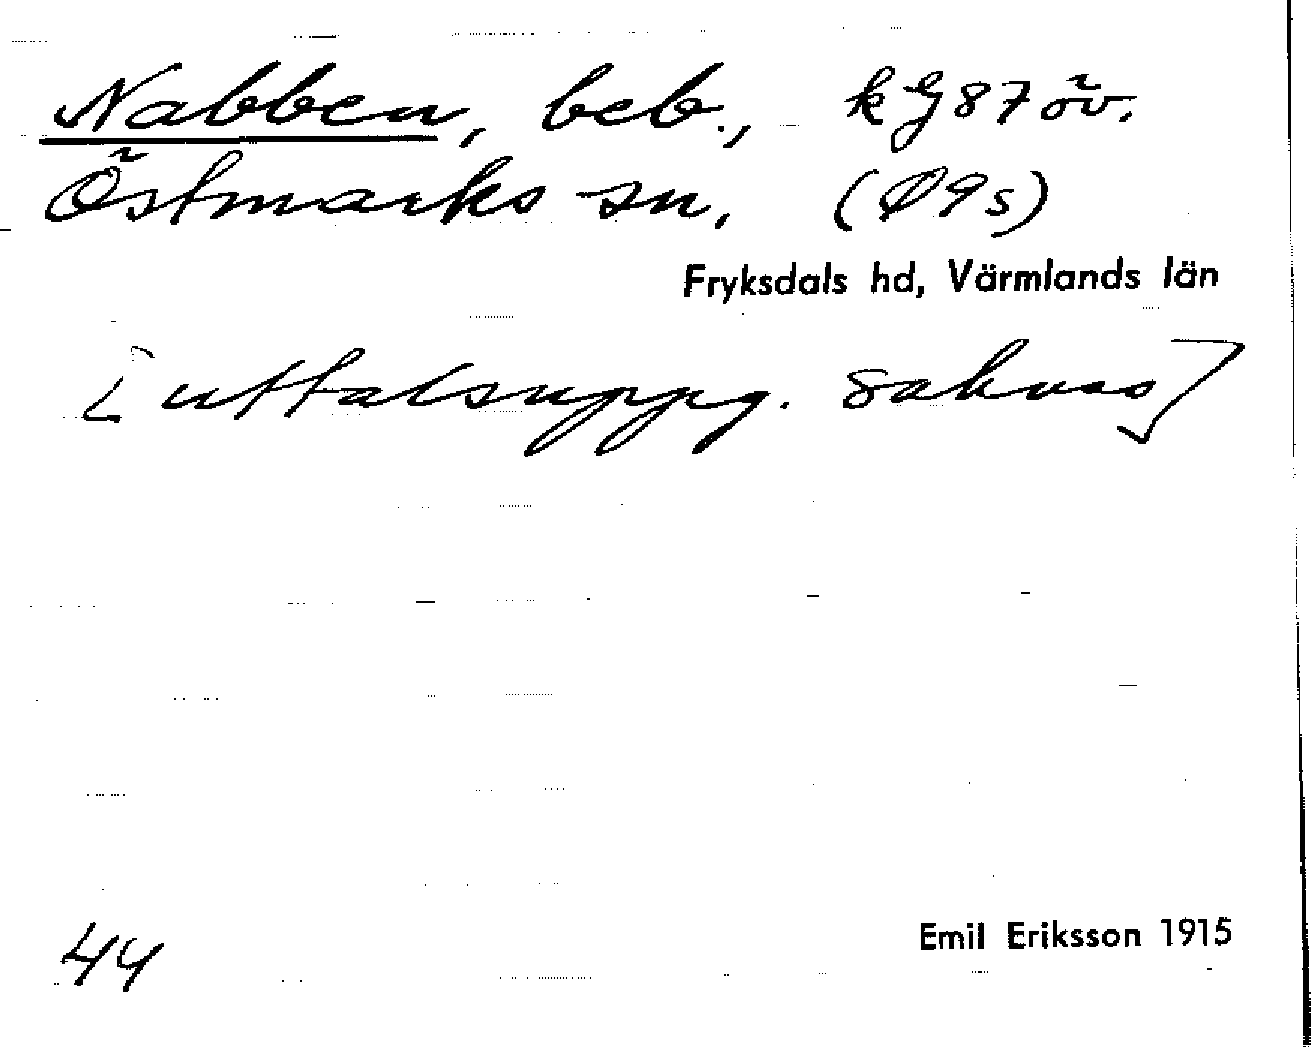 Nabben, beb., kG87öv.
Östmarks sn. (Ø9s)
Fryksdals hd, Värmlands län
[uttalsuppg. saknas]
44
Emil Eriksson 1915